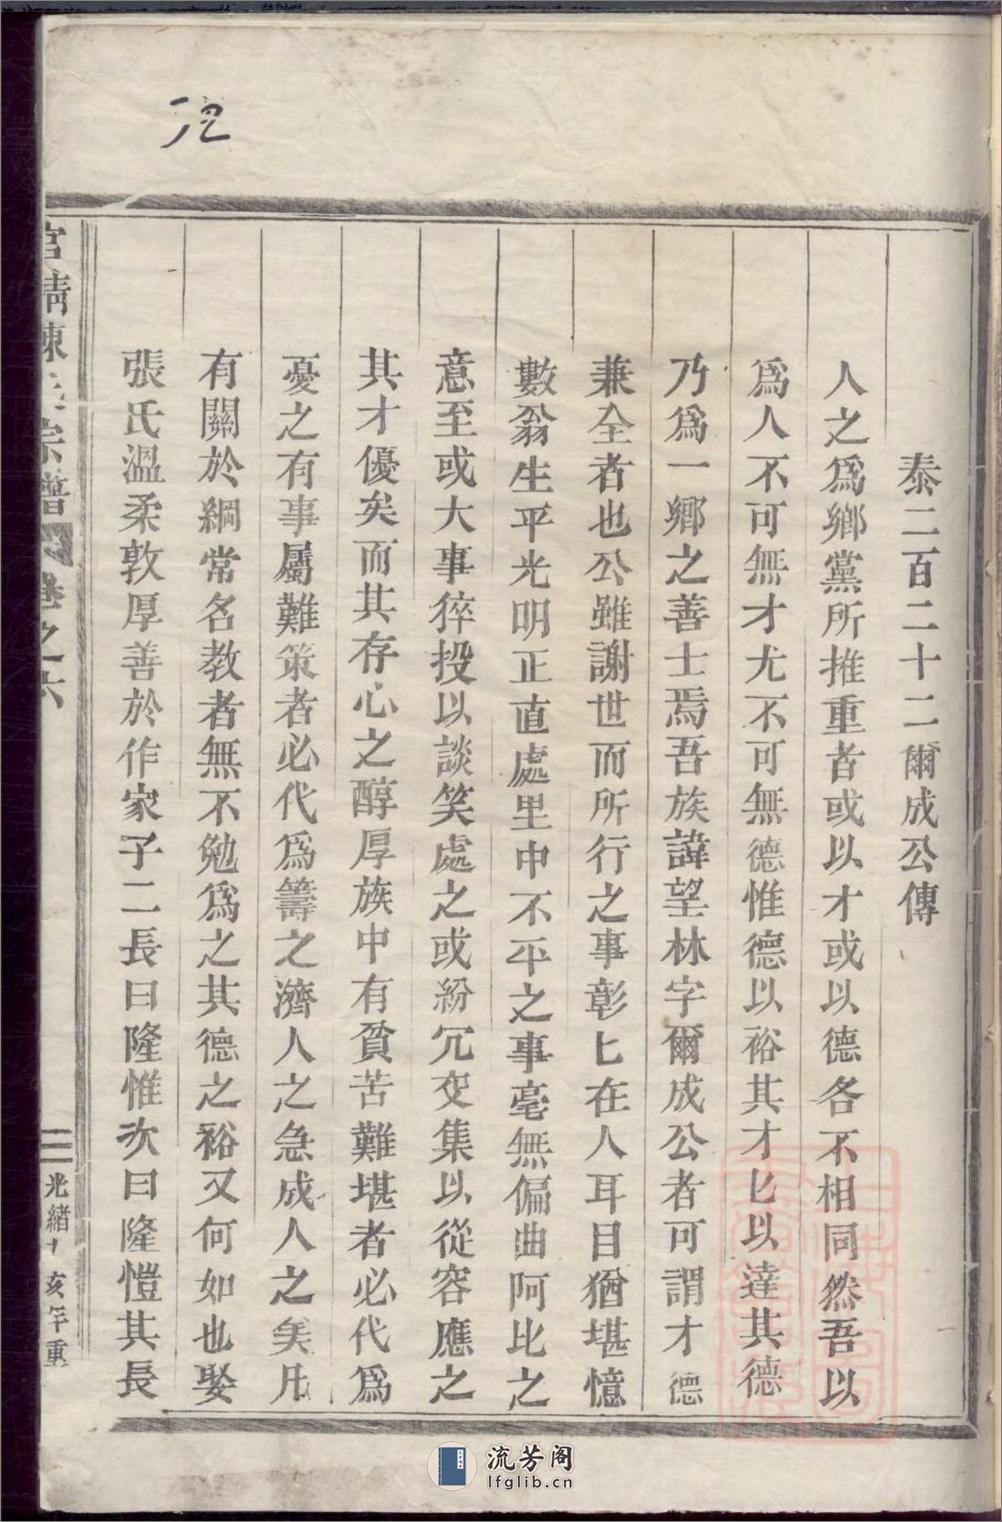 泰二百二十二爾成公傳
人之爲鄉黨所推重者或以才或以德各不相同然吾以
爲人不可無才尤不可無德惟德以裕其才匕以達其德
乃爲一鄉之善士焉吾族諱望林字爾成公者可謂才德
兼全者也公雖謝世而所行之事彰匕在人耳目猶堪憶
數翁生平光明正直處里中不平之事毫無偏曲阿比之
意至或大事猝投以談笑處之或紛冗交集以從容應之
其才優矣而其存心之醇厚族中有貧苦難堪者必代爲
憂之有事屬難策者必代爲籌之濟人之急成人之美凡
有關於綱常名教者無不勉爲之其德之裕又何如也娶
張氏溫柔敦厚善於作家子二長曰隆惟次曰隆愷其長
宗譜 卷之六
光緒 亥年重
流芳阁
lfglib.cn